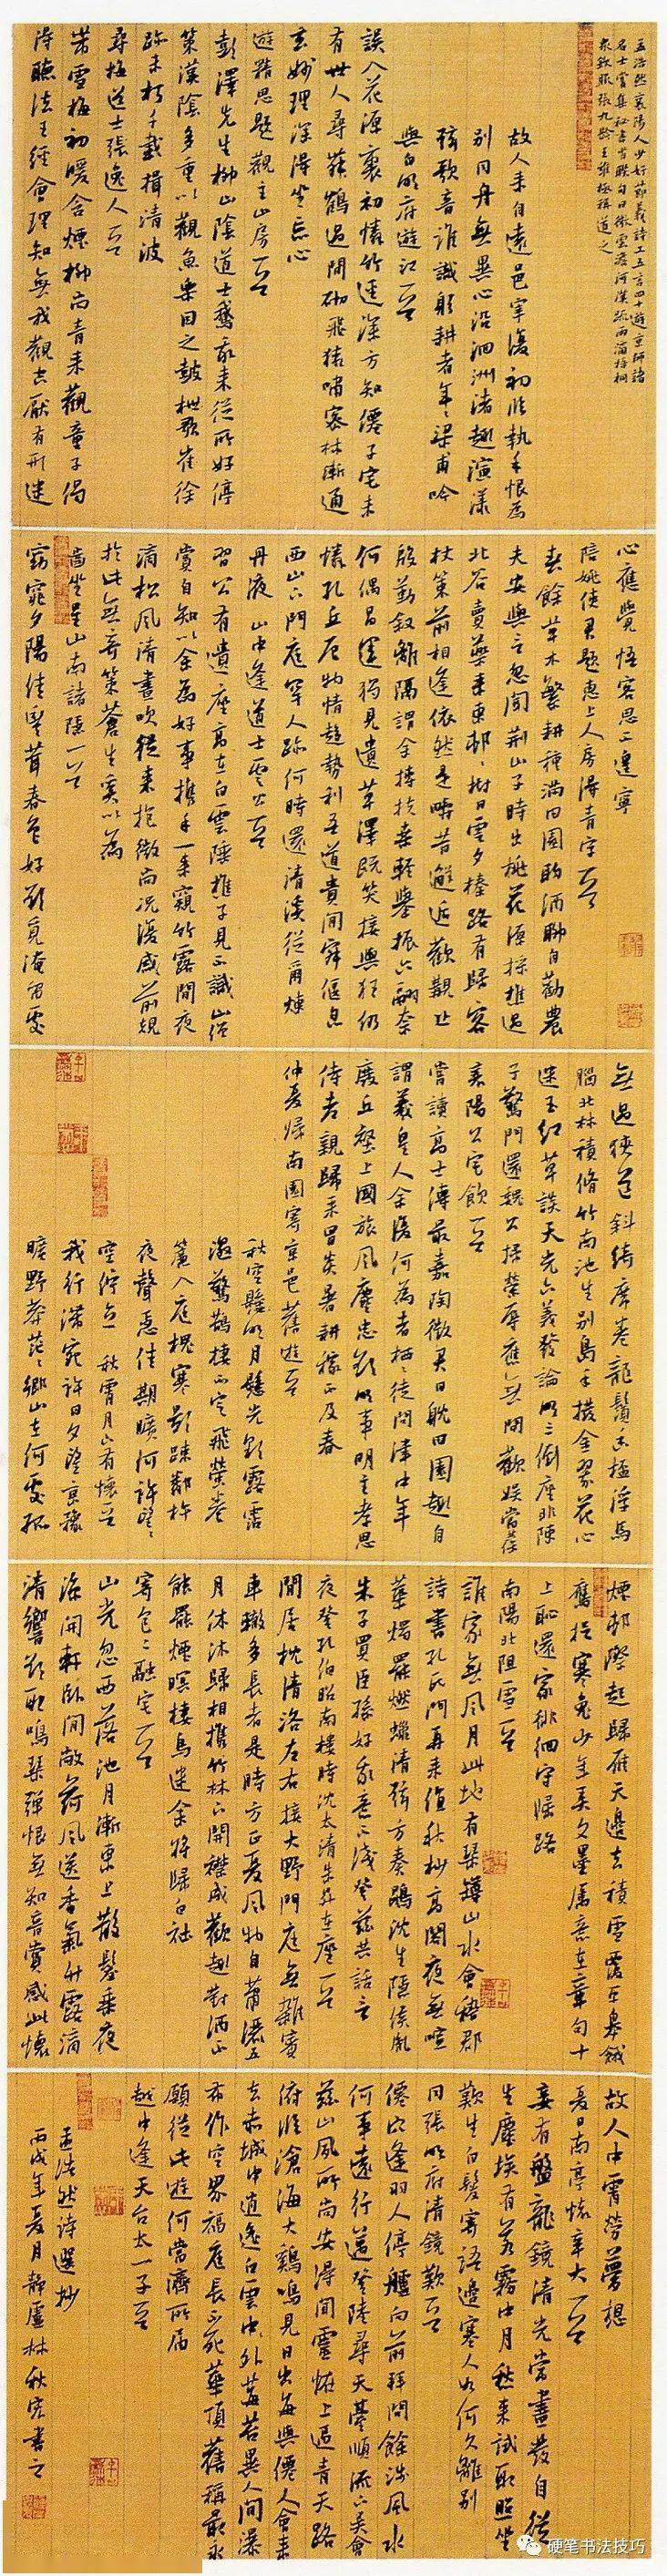 孟浩然襄陽人少好節義詩工五言四十遊京師諸
名士嘗集秘書省聯句曰微雲澹河漢疏雨滴梧桐
衆欽服張九齡王維極稱道之
故人來自遠邑宰復初臨執手恨為
別同舟無異心沿洄洲渚趣演漾
弦歌音誰識躬耕者年〻梁甫吟
與白明府遊江一首
誤入花源裏初憐竹逕深方知僊子宅未
有世人尋舞鶴過閒砌飛猿嘯密林漸通
玄妙理深得坐忘心
遊精思題觀主山房一首
彭澤先生柳山陰道士鵝我來從所好停
策漢陰多重以觀魚樂因之鼓枻歌崔徐
跡未朽千載揖清波
尋梅道士張逸人一首
苦雪梅初暖含煙柳尚青來觀童子偈
得聽法王經會理知無我觀空厭有形迷
心應覺悟客思不遑寧
陪姚使君題惠上人房得青字一首
春餘草木繁耕種滿田園酌酒聊自勸農
夫安與言忽聞荊山子時出桃花源採樵過
北谷賣藥來東邨〻樹日雲夕榛路有歸客
杖策前相逢依然是疇昔邂逅歡覯止
殷勤敘離隔謂余摶扶桑輕舉振六翮奈
何偶昌運獨見遺草澤既笑接輿狂仍
憐孔丘厄物情趨勢利吾道貴閒寂偃息
西山下門庭罕人跡何時還清溪從爾煉
丹液 山中逢道士雲公一首
習公有遺座高在白雲陲樵子見不識山僧
賞自知以余為好事攜手一來窺竹露閒夜
滴松風清晝吹從來抱微尚況復感前規
於此無奇策蒼生奚以為
齒坐呈山南諸隱一首
窈窕夕陽佳豐茸春色好欲覓淹留處
無過狹邑斜綺席卷龍鬚香杯浮馬
腦北林積脩竹南池生別島手撥金翠花心
迷玉紅草談天光六義發論明三倒座非陳
子驚門還魏公掃榮辱應無間歡娛當共保
襄陽公宅飲一首
嘗讀高士傳最嘉陶徵君日躭田園趣自
謂羲皇人余復何為者栖〻徒問津中年
廢丘壑上國旅風塵忠欲明事明主孝思
侍老親歸來冒炎暑耕稼不及春
仲夏歸南園寄京邑舊遊一首
秋空明月懸光彩露霑
濕驚鵲棲不定飛螢卷
簾入庭槐寒影疎鄰杵
夜聲急佳期曠何許望〻
空佇立 秋宵月下有懷一首
我行滯宛許日夕望京豫
曠野莽茫〻鄉山在何處孤
煙邨際起歸雁天邊去積雪覆平皋餓
鷹捉寒兔少年弄文墨屬意在章句十
上恥還家徘徊守歸路
南陽北阻雪一首
誰家無風月此地有琴罇山水會稽郡
詩書孔氏門再來值秋杪高閣夜無喧
華燭罷燃蠟清弦方奏鵾沈生隱侯胤
朱子買臣孫好我意不淺登茲共話言
夜登孔伯昭南樓時沈太清朱昇在座一首
閒居枕清洛左右接大野門庭無雜賓
車轍多長者是時方正夏風物自蕭灑五
月休沐歸相攜竹林下開襟成歡趣對酒不
能罷煙暝棲鳥迷余將歸白社
宴包二融宅一首
山光忽西落池月漸東上散髮乘夜
涼開軒臥閒敞荷風送香氣竹露滴
清響欲取鳴琴彈恨無知音賞感此懷
故人中宵勞夢想
夏日南亭懷辛大一首
妾有盤龍鏡清光常晝發自從
生塵埃有若霧中月愁來試取照坐
歎生白髮寄語邊塞人如何久離別
同張明府清鏡歎一首
僊穴逢羽人停艫向前拜問餘涉風水
何事遠行邁登陸尋天臺順流下吳會
茲山夙所尚安得聞靈怪上逼青天路
俯臨滄海大雞鳴見日出每與僊人會來
去赤城中逍遙白雲中外莓苔異人間瀑
布作空界福庭長不死華頂舊稱最永
願從此遊何當濟所屆
越中逢天台太一子一首
孟浩然詩選抄
丙戌年夏月靜廬林秋宏書之
硬笔书法技巧